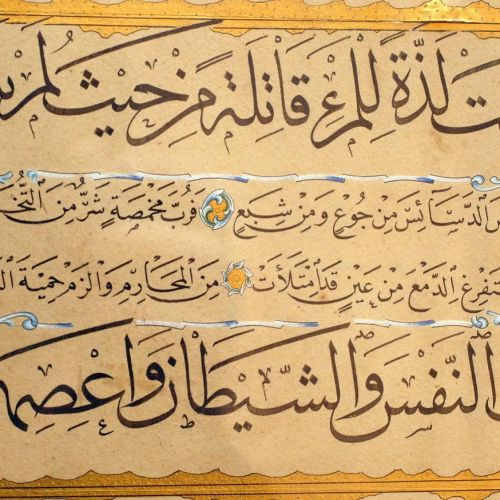 ت لَذَّةً لِلْمَرْءِ قَاتِلَةً مِنْ حَيْثُ لَمْ
الدَّسَائِسَ مِنْ جُوعٍ وَمِنْ شِبَعٍ فَرُبَّ مَخْمَصَةٍ شَرٌّ مِنَ التُّخَ
سْتَفْرِغِ الدَّمْعَ مِنْ عَيْنٍ قَدِ امْتَلَأَتْ مِنَ الْمَحَارِمِ وَالْزَمْ حِمْيَةَ ال
النَّفْسَ وَالشَّيْطَانَ وَاعْصِهِمَا